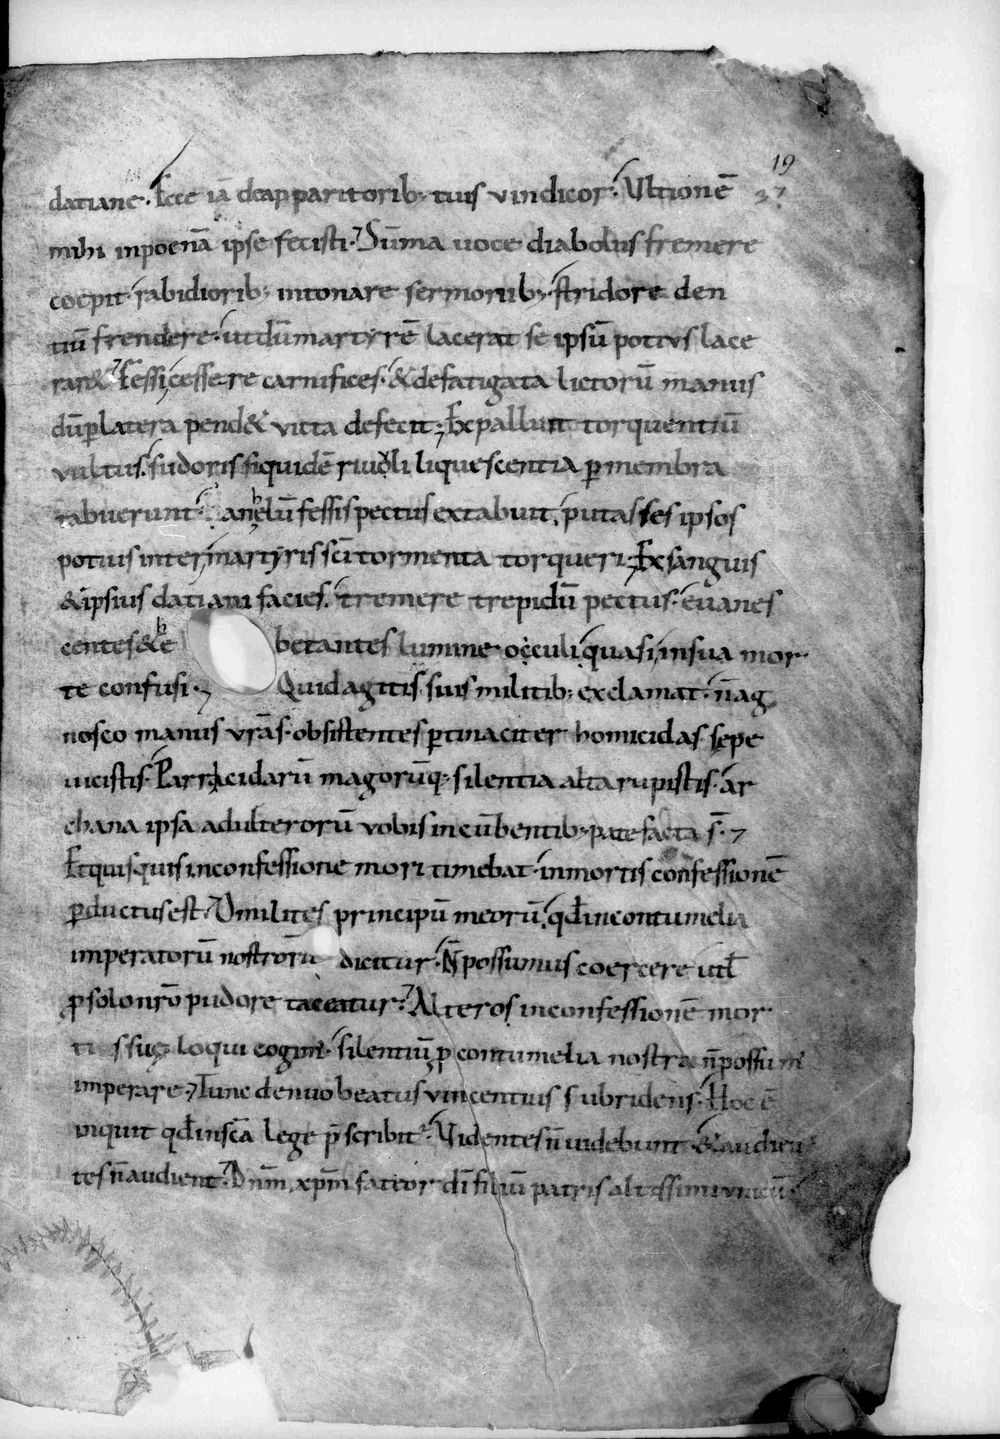 19
datiane. Ecce iā deapparitorib; tuis vindicor. Ultionē
mihi inpoenā ipse fecisti. Sūma uoce diabolus fremere
coepit. rabidiorib; intonare sermonib; stridore den
tiū frendere. ut dūmartyrē lacerat se ipsū potius lace
rar&. Fessi cessere carnifices. & defatigata lictorū manus
dūplatera pend& victa defecit; Expallunt torquentiū
vultus. sudoris siquidē riuoli liquescentia pmembra
tabuerunt. anhelū fessis pectus extabuit. putasses ipsos
potius inter martyris scī tormenta torqueri; Exsanguis
& ipsius datiani facies. tremere trepidū pectus. euanes
centes & he betantes lumine occuli quasi insua mor
te confusi. Quid agitis suis militib; exclamat. n̄ ag
nosco manus vrās. obsistentes ptinaciter homicidas sepe
uicistis. Parracidarū magorūq; silentia alta rupistis. ar
chana ipsa adulterorū vobis incūbentib; patefacta s̄.
Et quisquis inconfessione mori timebat. inmortis confessionē
pductus est. O milites principū meorū. qd̄ incontumelia
imperatorū nostrorū dicitur. N̄ possumus coercere ut
psolonrō pudore taceatur. Alteros inconfessionē mor
ti s sue loqui cogim. silentiū p contumelia nostra n̄ possum
imperare. Tunc denuo beatus vincentius subridens. Hoc ē
inquit qd̄ inscā lege p̄scribit. Videntes n̄ uidebunt. & audien
tes n̄ audient. Dn̄m xp̄m fateor dī filiū patris altissimi unicū.